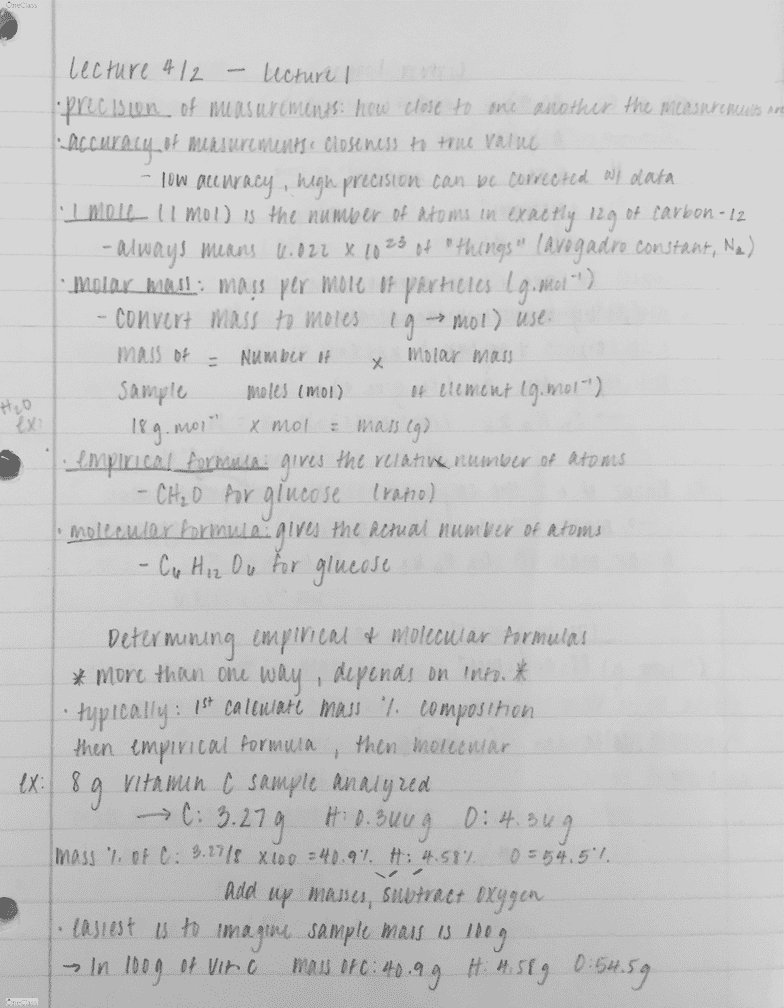 OneClass
Lecture 4/2 – Lecture 1
• precision of measurements: how close to one another the measurements are
• accuracy of measurements: closeness to true value
- low accuracy, high precision can be corrected w/ data
• 1 mole (1 mol) is the number of atoms in exactly 12g of carbon-12
- always means 6.022 x 10²³ of "things" (Avogadro constant, Na)
• molar mass: mass per mole of particles (g.mol⁻¹)
- convert mass to moles (g → mol) use:
mass of = Number of x Molar mass
Sample moles (mol) of element (g.mol⁻¹)
H₂O
ex: 18g.mol⁻¹ x mol = mass (g)
• empirical formula: gives the relative number of atoms
- CH₂O for glucose (ratio)
• molecular formula: gives the actual number of atoms
- C₆ H₁₂ O₆ for glucose
Determining empirical & molecular formulas
* more than one way, depends on info. *
• typically: 1st calculate mass % composition
then empirical formula, then molecular
ex: 8g vitamin C sample analyzed
→ C: 3.27g H: 0.366g O: 4.36g
Mass % of C: 3.27/8 x100 = 40.9% H: 4.58% O = 54.5%
Add up masses, subtract oxygen
• easiest is to imagine sample mass is 100g
→ In 100g of Vit C mass of C: 40.9g H: 4.58g O: 54.5g
OneClass